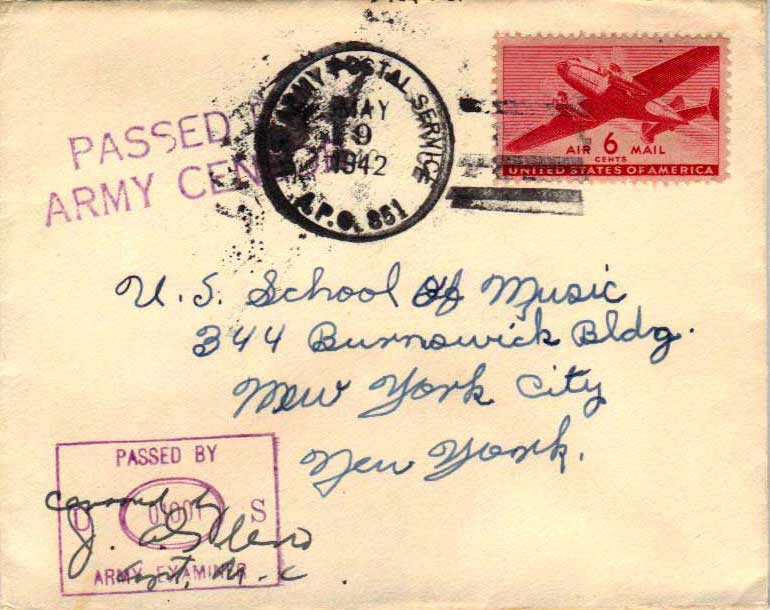 PASSED
ARMY
ARMY POSTAL SERVICE
MAY
9
1942
A.P.O. 851
AIR 6 MAIL
CENTS
UNITED STATES OF AMERICA
U. S. School Of Music
344 Burnswick Bldg.
New York City
New York.
PASSED BY
censored by
S
J.
ARMY EXAMINER